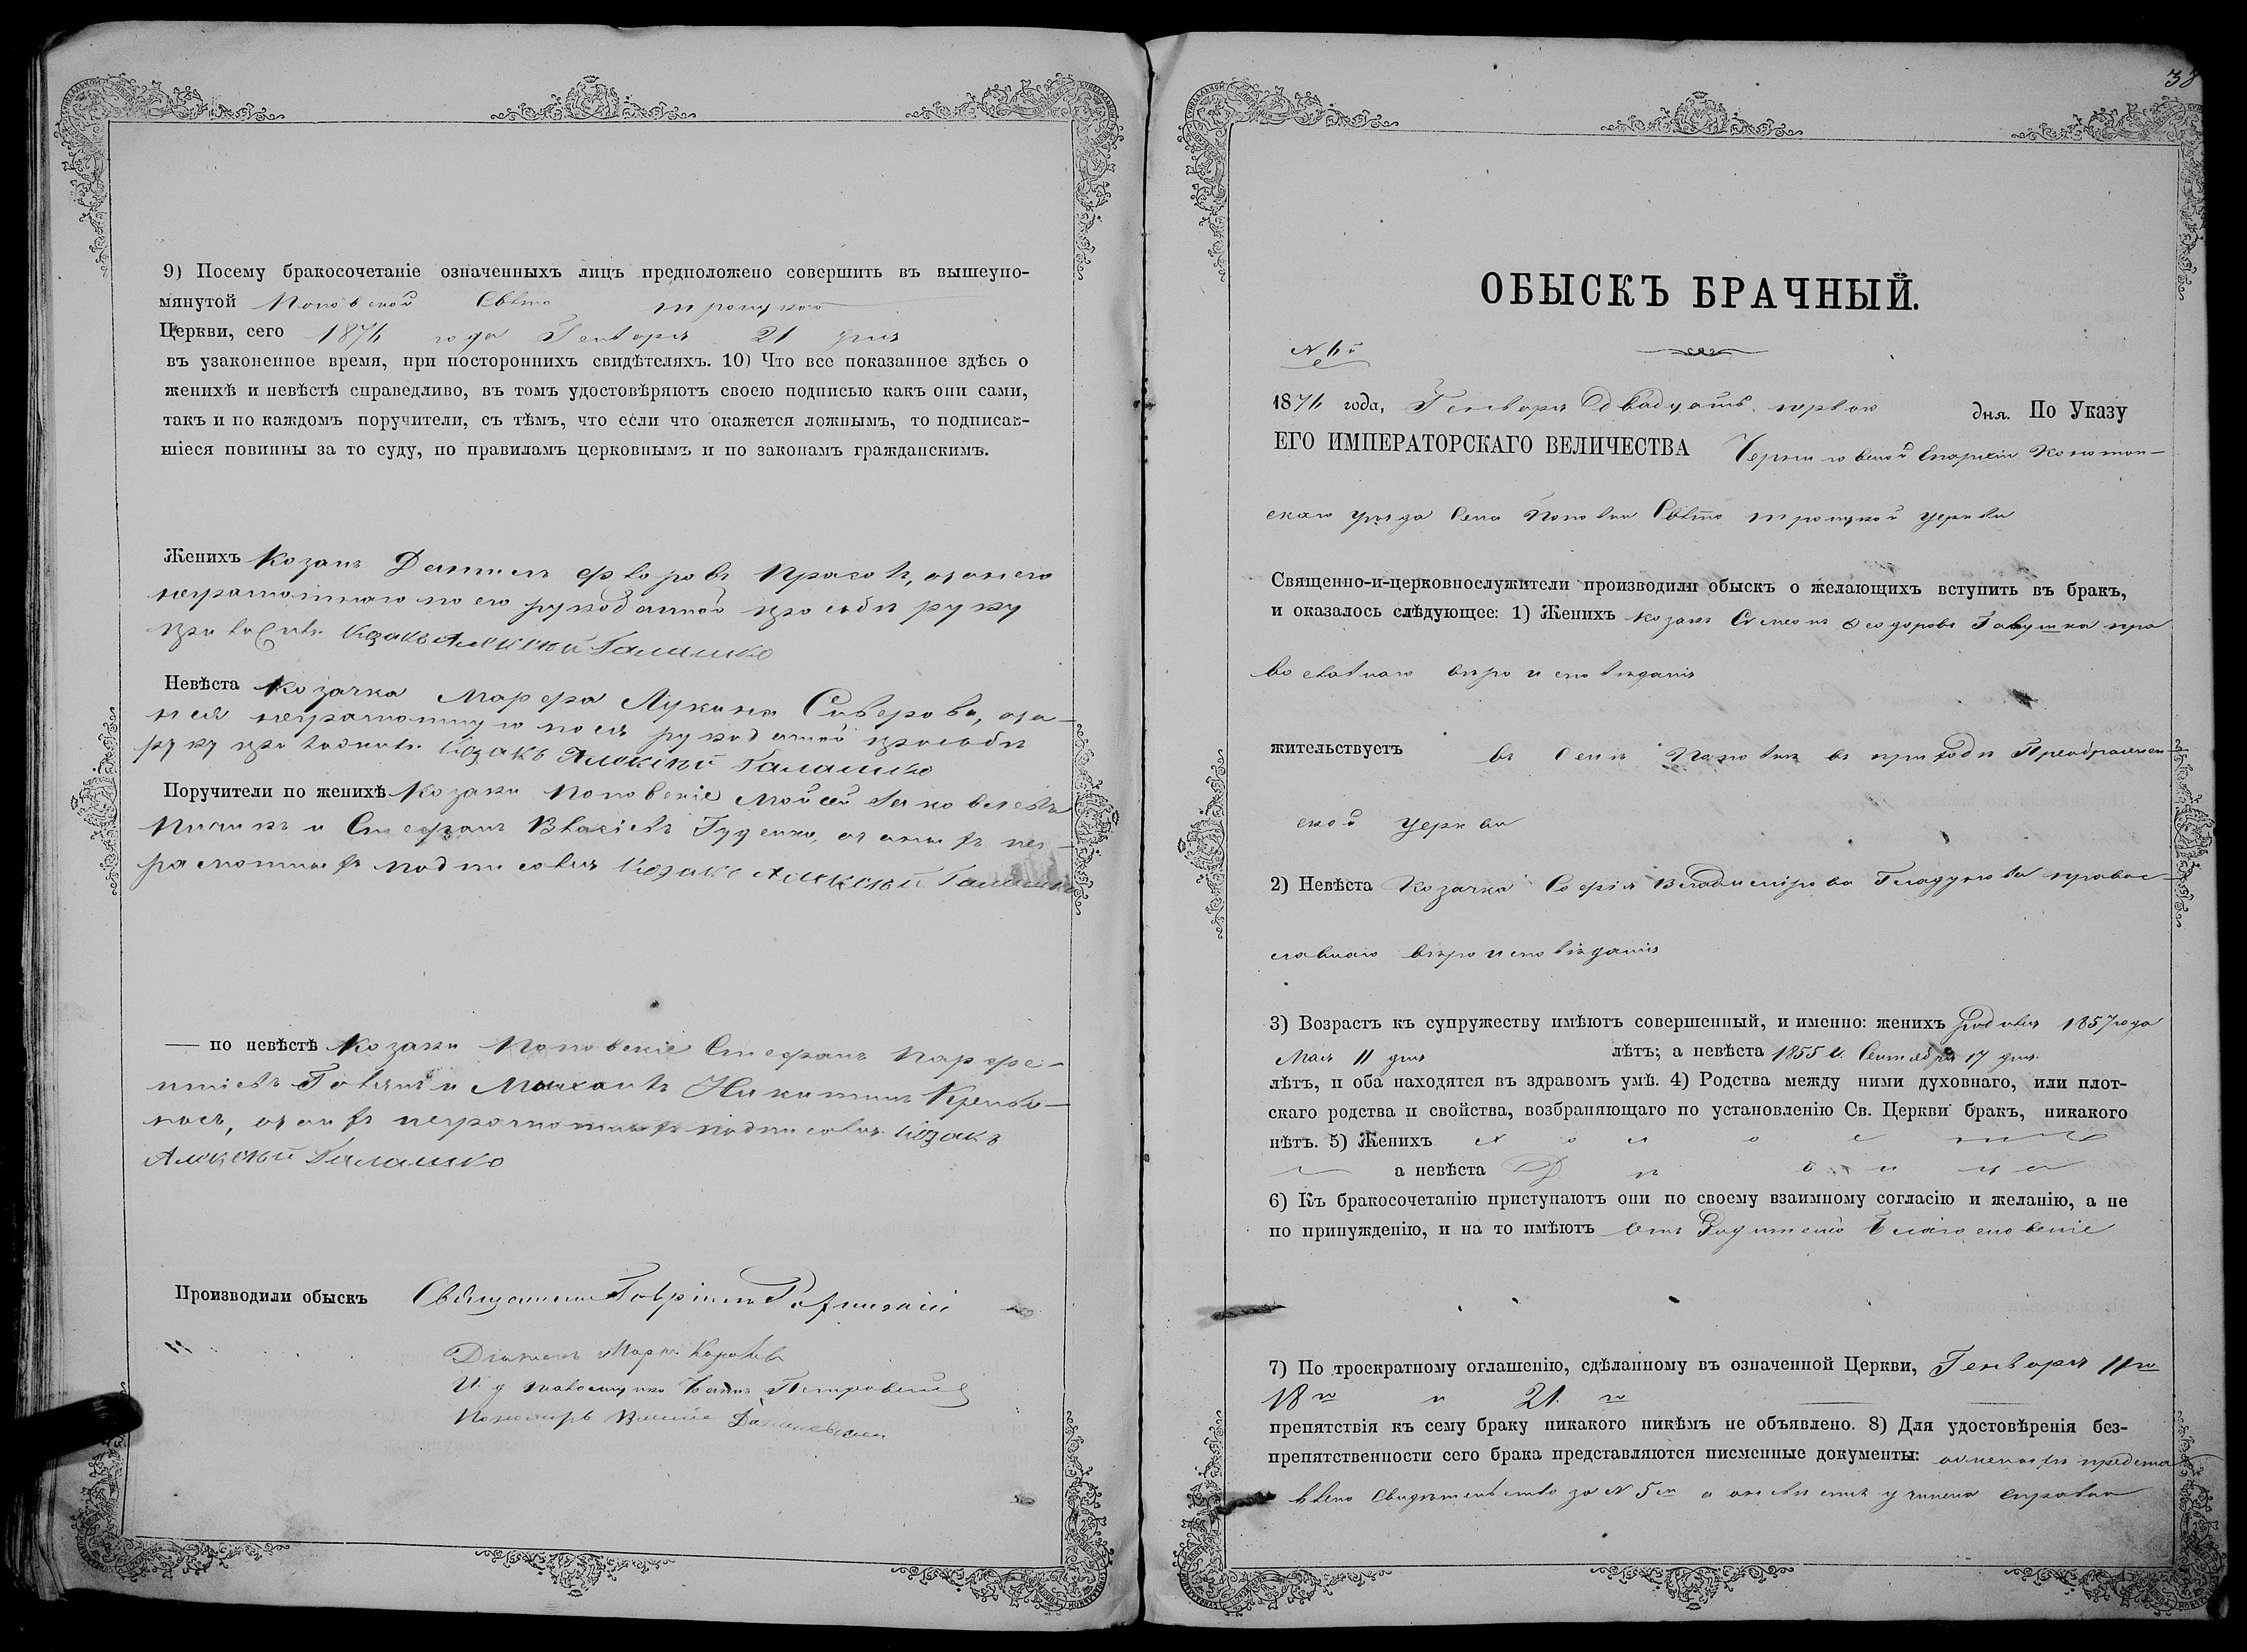 9) Посему бракосочетаніе означенныхъ лицъ предположено совершить въ вышеупо-
мянутой Поповской Свято троицкой
Церкви, сего 1876 года Генваря 21 дня
въ узаконенное время, при постороннихъ свидѣтеляхъ. 10) Что все показанное здѣсь о
женихѣ и невѣстѣ справедливо, въ томъ удостовѣряютъ своею подписью какъ они сами,
такъ и по каждомъ поручители, съ тѣмъ, что если что окажется ложнымъ, то подписав-
шіеся повинны за то суду, по правиламъ церковнымъ и по законамъ гражданскимъ.
Женихъ Козакъ Даниилъ
неграмотнаго по его рукоданной прозьби руку
Козакъ Алексѣй Галашко
Невѣста Козачка Марфа Лукина Сиверова, за
нея неграмотную по ея рукоданной прозьби
руку Козакъ Алексѣй Галашко
Поручители по женихѣ Козаки Поповскіе Мойсей Яковлевъ
и Стефанъ Власіевъ Гуденко, за нихъ нег-
рамотныхъ подписался Козакъ Алексѣй Галашко
— по невѣстѣ Козаки Поповскіе Стефанъ Парфе-
ніевъ и Михаилъ Никитинъ
за нихъ неграмотныхъ подписался Козакъ
Алексѣй Галашко
Производили обыскъ Священникъ Гавріилъ
Діаконъ Марко
И. д. псаломщика Петровскій
Пономарь
38
ОБЫСКЪ БРАЧНЫЙ.
N 6й
1876 года, Генваря двадцать перваго дня. По Указу
ЕГО ИМПЕРАТОРСКАГО ВЕЛИЧЕСТВА Черниговской Епархіи Конотоп-
скаго уѣзда Села Поповки Свято троицкой церкви
Священно-и-церковнослужители производили обыскъ о желающихъ вступить въ бракъ,
и оказалось слѣдующее: 1) Женихъ козакъ Симеонъ Феодоровъ пра
вославнаго вѣроисповѣданія
жительствуетъ въ Селѣ Поповкѣ въ приходѣ Преображен-
ской церкви
2) Невѣста Козачка Софія Владимірова Гладунова правос-
славнаго вѣроисповѣданія
3) Возрастъ къ супружеству имѣютъ совершенный, и именно: женихъ родился 1857 года
Мая 11 дня лѣтъ; а невѣста 1855 г. Сентября 17 дня
лѣтъ, и оба находятся въ здравомъ умѣ. 4) Родства между ними духовнаго, или плот-
скаго родства и свойства, возбраняющаго по установленію Св. Церкви бракъ, никакого
нѣтъ. 5) Женихъ холостъ
а невѣста Дѣвица
6) Къ бракосочетанію приступаютъ они по своему взаимному согласію и желанію, а не
по принужденію, и на то имѣютъ отъ Родителей Благословеніе
7) По троекратному оглашенію, сдѣланному въ означенной Церкви, Генваря 11го
18го и 21го
препятствія къ сему браку никакого никѣмъ не объявлено. 8) Для удостовѣренія без-
препятственности сего брака представляются писменные документы: о женихѣ предста
влено Свидѣтельство за N 5м а о невѣстѣ учинена справка